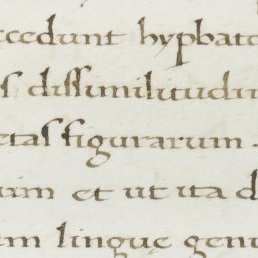 ccedunt hypbato
s dissimilitudin
etas figurarum.
uim et ut ita d
em linguę genu